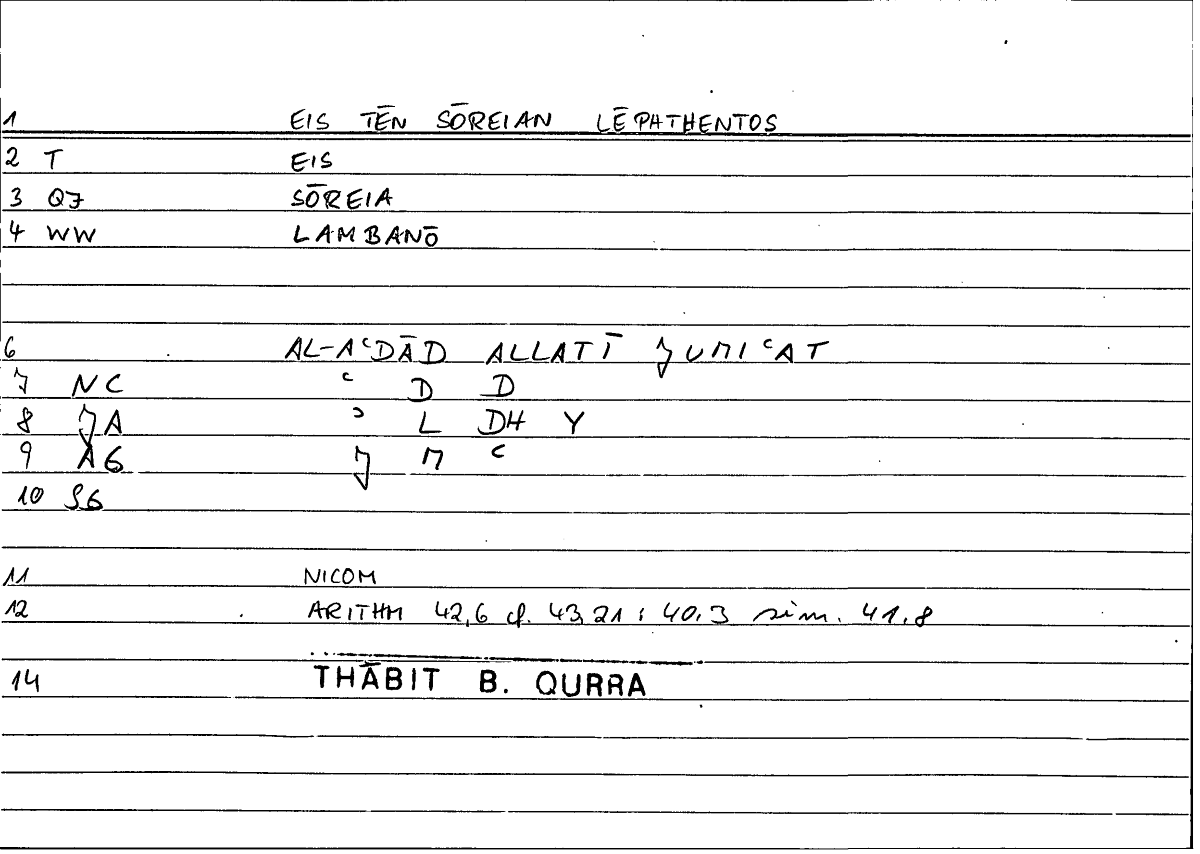 1 EIS TĒN SŌREIAN LĒPHTHENTOS
2 T EIS
3 QJ SŌREIA
4 WW LAMBANŌ
6 AL-AʿDĀD ALLATĪ ǦUMIʿAT
7 NC ʿ D D
8 JA ʾ L DH Y
9 AG Ǧ M ʿ
10 SG
11 NICOM
12 ARITHM 42,6 cf. 43,21 : 40.3 sim. 41.8
14 THĀBIT B. QURRA